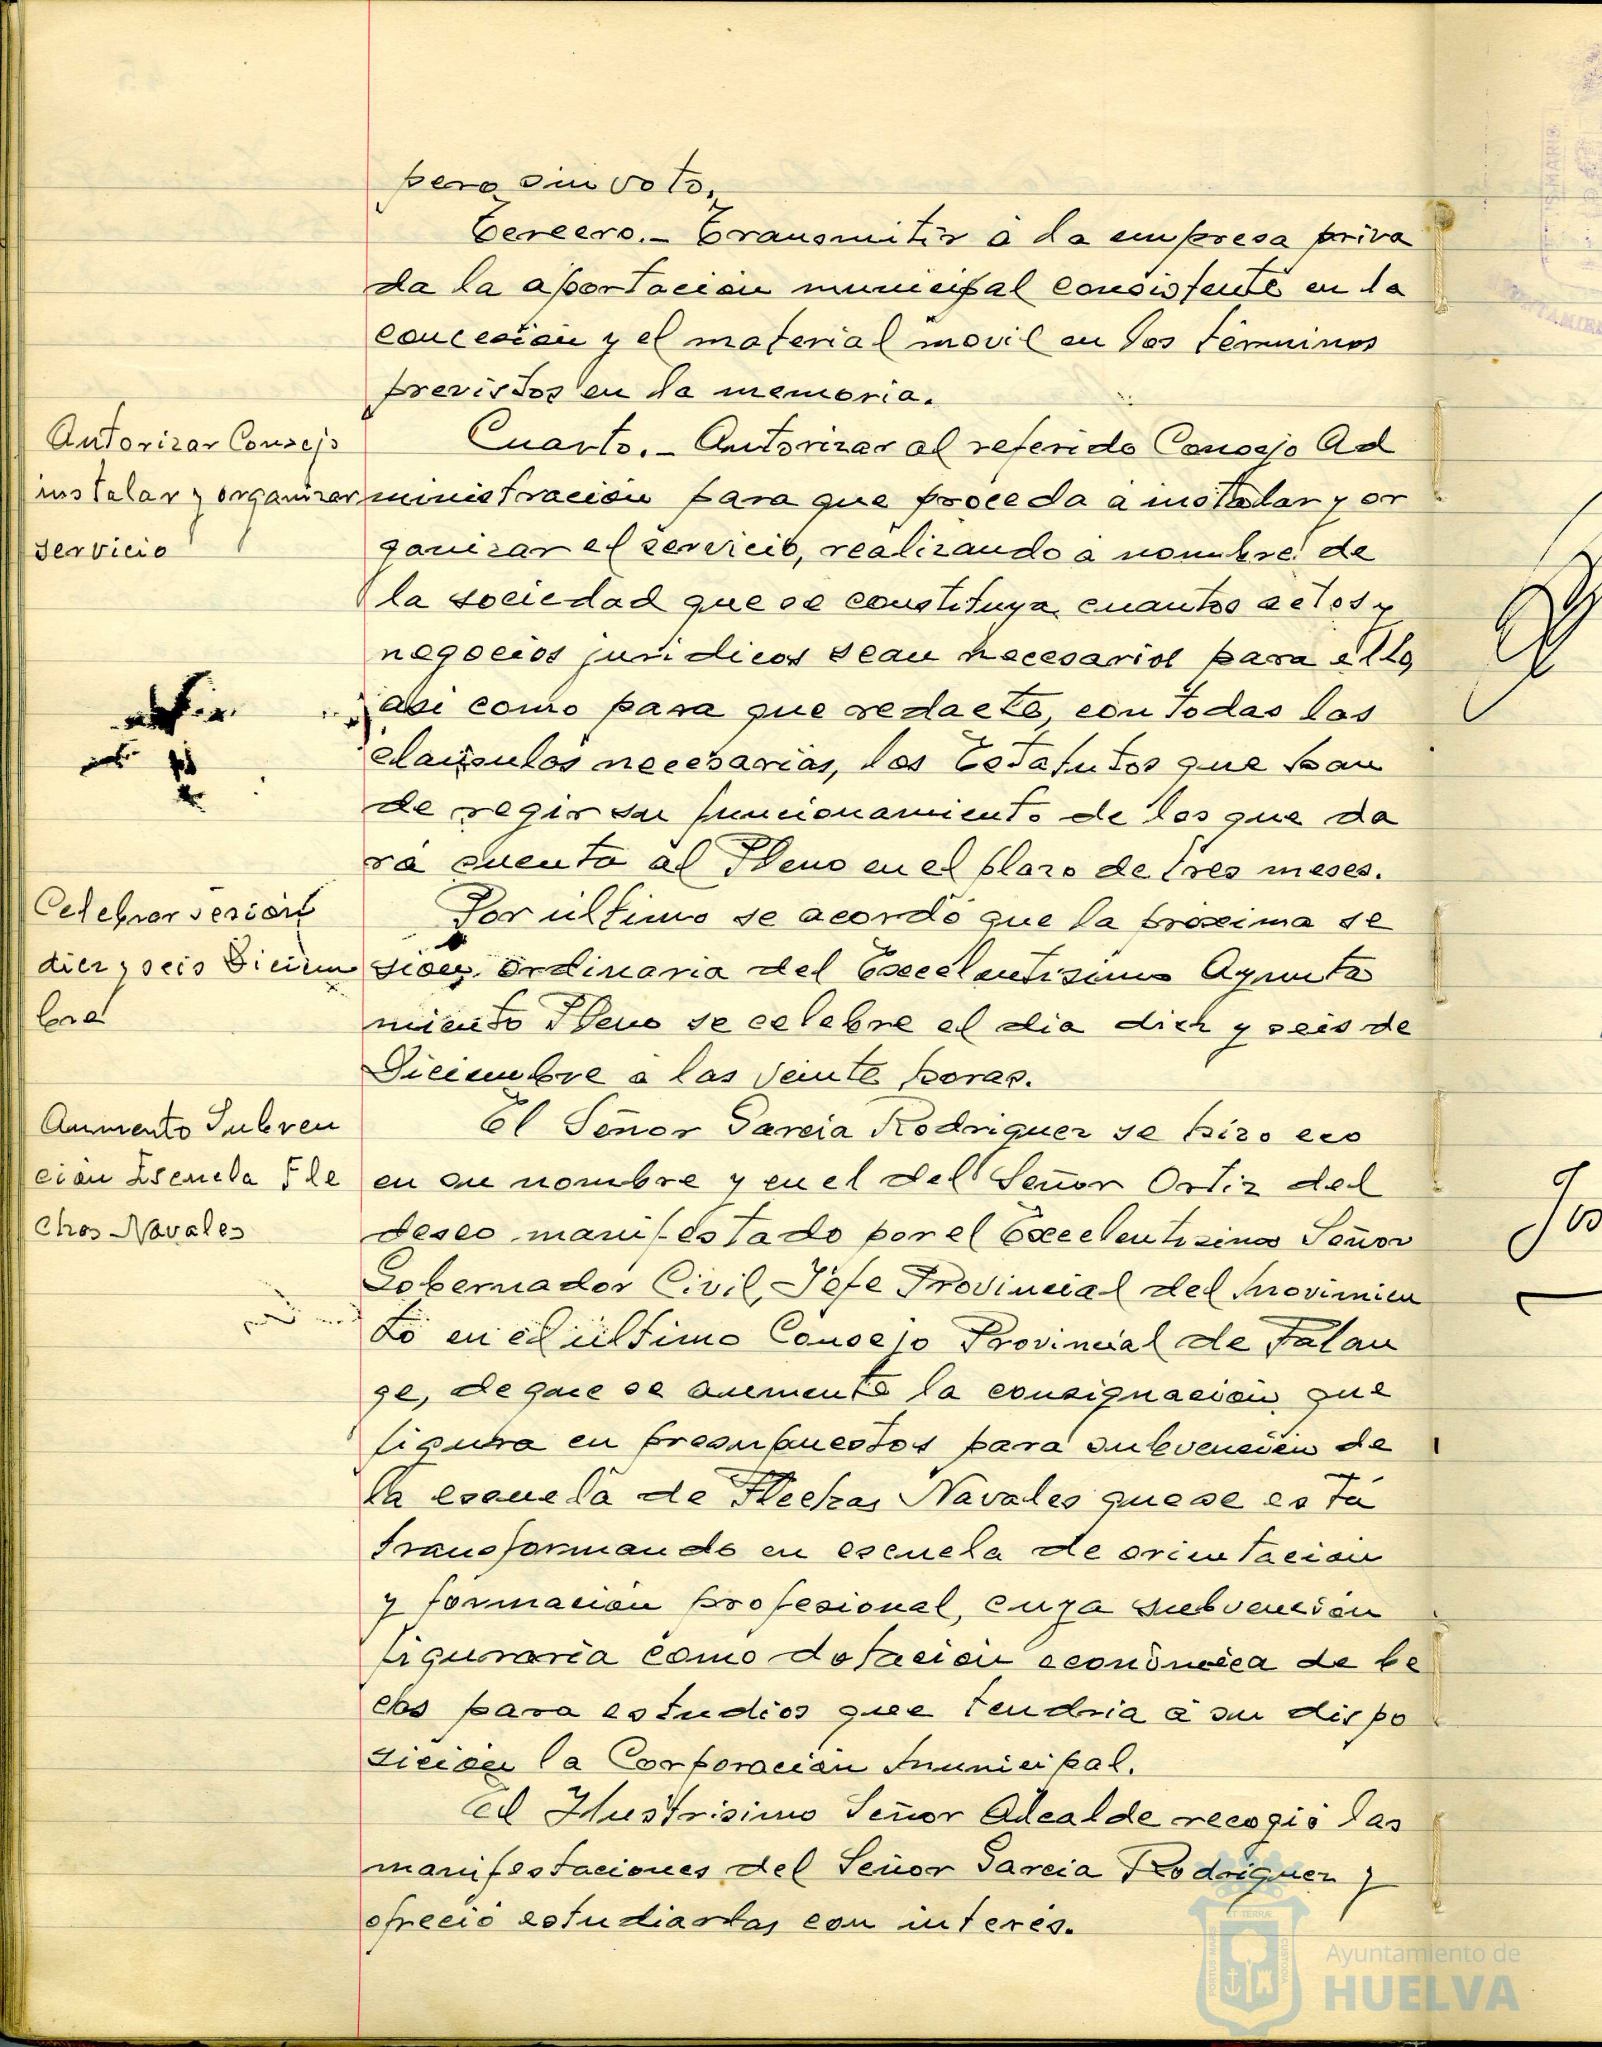 pero sin voto.
Tercero.- Transmitir á la empresa priva
da la aportación municipal consistente en la
concesión y el material movil en los términos
previstos en la memoria.
Autorizar Consejo
instalar y organizar
servicio
Cuarto.- Autorizar al referido Consejo Ad
ministración para que proceda á instalar y or
ganizar el servicio, realizando á nombre de
la sociedad que se constituya cuantos actos y
negocios juridicos sean necesarios para ello,
asi como para que redacte, con todas las
clausulas necesarias, los Estatutos que han
de regir su funcionamiento de los que da
rá cuenta al Pleno en el plazo de tres meses.
Celebrar sesión
diez y seis Diciem
bre
Por último se acordó que la próxima se
sion ordinaria del Excelentisimo Ayunta
miento Pleno se celebre el dia diez y seis de
Diciembre á las veinte horas.
Aumento Subven
ción Escuela Fle
chas Navales
El Señor Garcia Rodriguez se hizo eco
en su nombre y en el del Señor Ortiz del
deseo manifestado por el Excelentisimo Señor
Gobernador Civil, Jefe Provincial del Movimien
to en el último Consejo Provincial de Falan
ge, de que se aumente la consignación que
figura en presupuestos para subvención de
la escuela de Flechas Navales que se está
transformando en escuela de orientación
y formación profesional, cuya subvención
figuraria como dotación económica de be
cas para estudios que tendria á su dispo
sición la Corporación Municipal.
El Ilustrisimo Señor Alcalde recogió las
manifestaciones del Señor Garcia Rodriguez y
ofreció estudiarlas con interés.
Ayuntamiento de
HUELVA